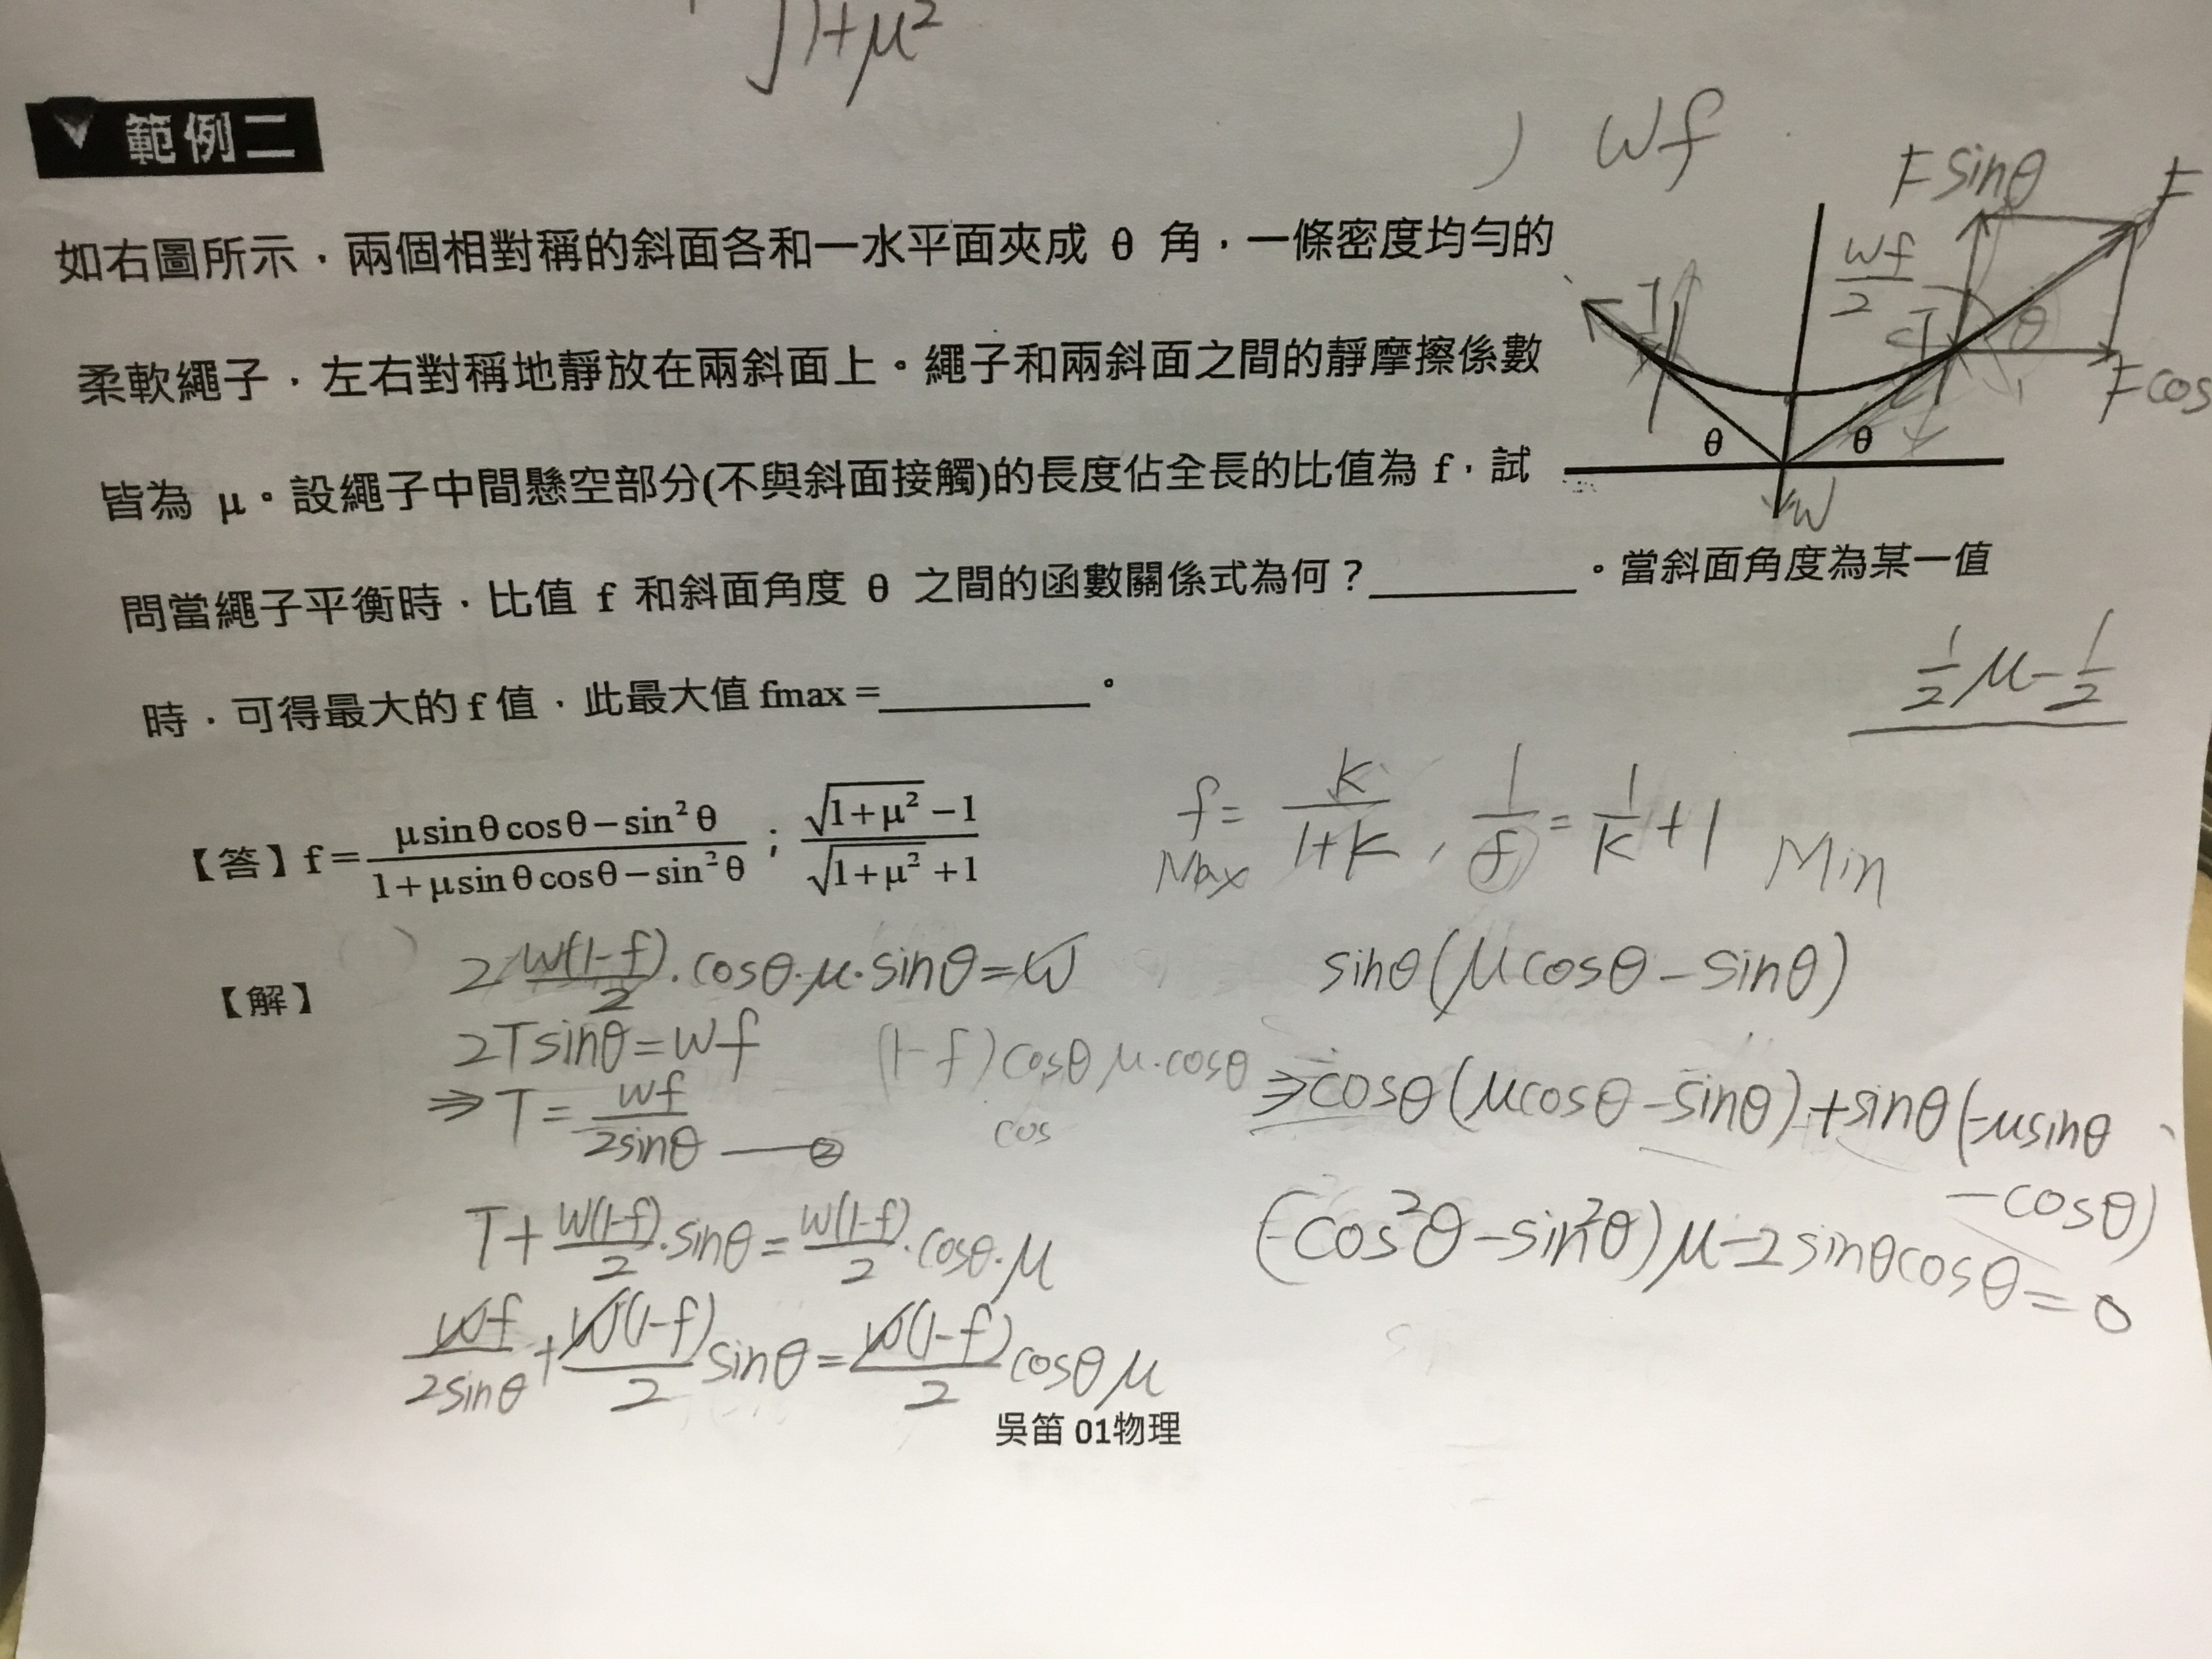 √1+μ²
範例二
) Wf
F sinθ
F
如右圖所示，兩個相對稱的斜面各和一水平面夾成 θ 角，一條密度均勻的
Wf/2
T
T
θ
F cos
柔軟繩子，左右對稱地靜放在兩斜面上。繩子和兩斜面之間的靜摩擦係數
θ θ
皆為 μ。設繩子中間懸空部分(不與斜面接觸)的長度佔全長的比值為 f，試
W
問當繩子平衡時，比值 f 和斜面角度 θ 之間的函數關係式為何？________。當斜面角度為某一值
時，可得最大的 f 值，此最大值 fmax =________。
1/2 μ - 1/2
【答】f = (μsinθcosθ－sin²θ)/(1+μsinθcosθ－sin²θ) ; (√1+μ² -1)/(√1+μ² +1)
f = k/(1+k) , 1/f = 1/k + 1 Min
Max
【解】
2 W(1-f)/2 · cosθ·μ·sinθ = W
2Tsinθ = Wf
⇒ T = Wf/2sinθ —②
(1-f)cosθ μ·cosθ
cos
T + W(1-f)/2 · sinθ = W(1-f)/2 · cosθ·μ
Wf/2sinθ + W(1-f)/2 sinθ = W(1-f)/2 cosθ μ
sinθ(μcosθ - sinθ)
⇒ cosθ(μcosθ - sinθ) + sinθ(-μsinθ
-cosθ)
(cos²θ - sin²θ)μ - 2sinθcosθ = 0
吳笛 01物理